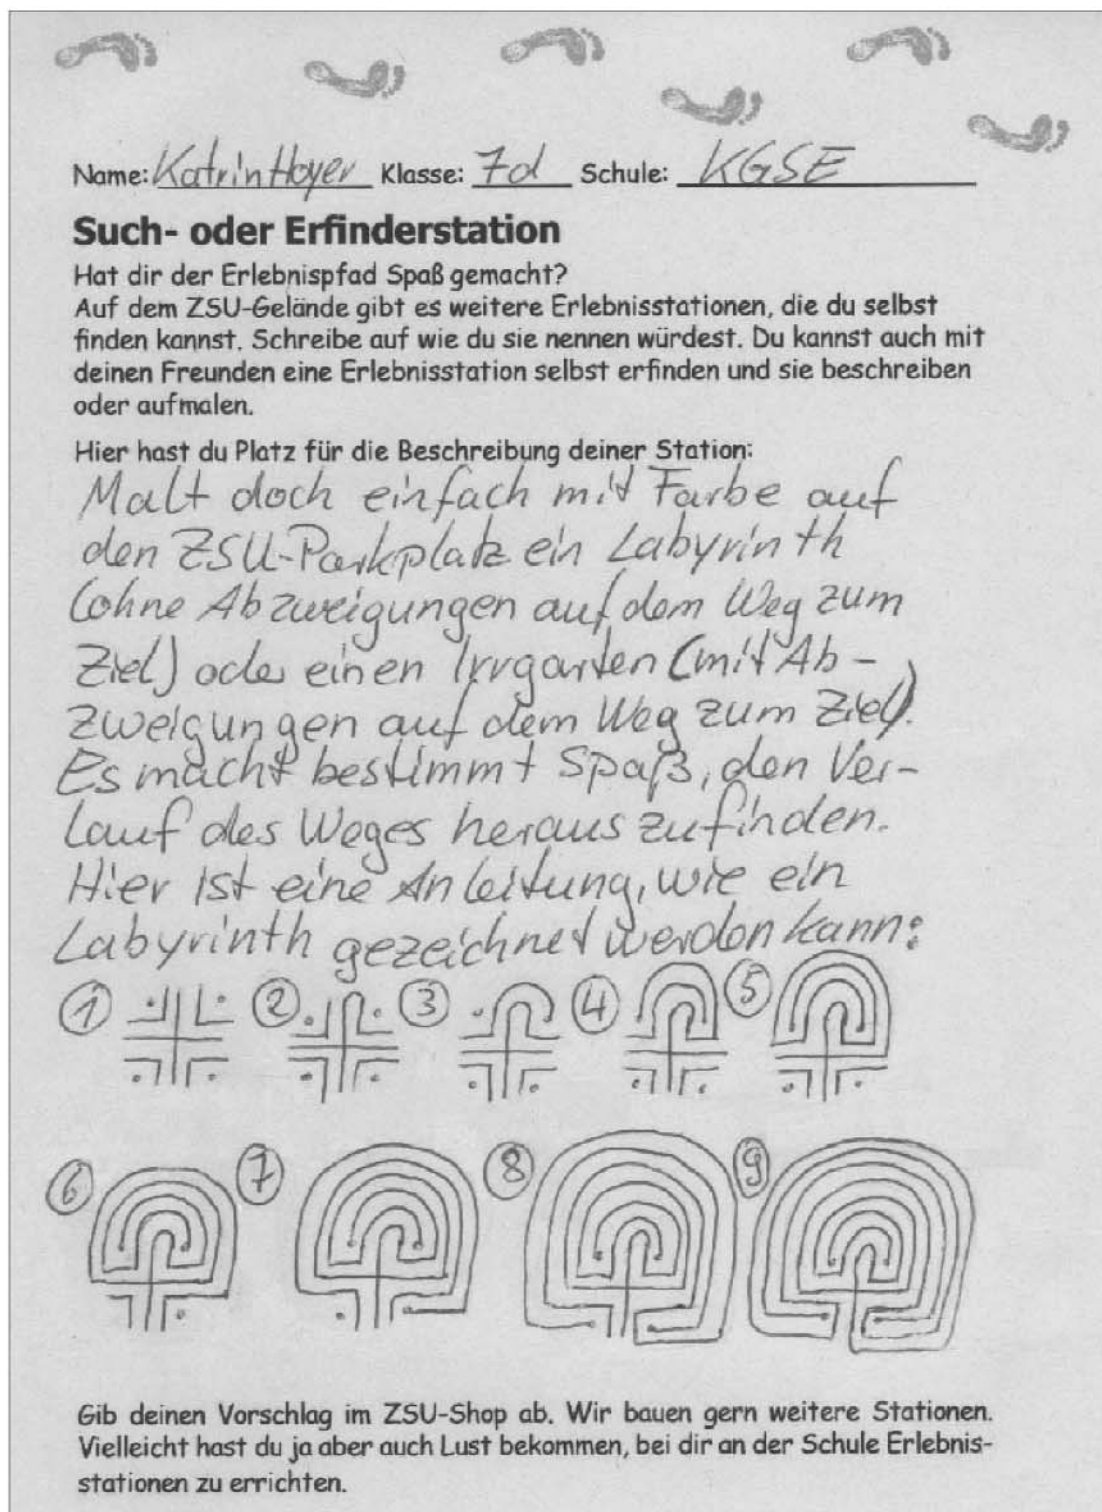 Name: Katrin Hoyer Klasse: 7d Schule: KGSE
Such- oder Erfinderstation
Hat dir der Erlebnispfad Spaß gemacht?
Auf dem ZSU-Gelände gibt es weitere Erlebnisstationen, die du selbst
finden kannst. Schreibe auf wie du sie nennen würdest. Du kannst auch mit
deinen Freunden eine Erlebnisstation selbst erfinden und sie beschreiben
oder aufmalen.
Hier hast du Platz für die Beschreibung deiner Station:
Malt doch einfach mit Farbe auf
den ZSU-Parkplatz ein Labyrinth
(ohne Abzweigungen auf dem Weg zum
Ziel) oder einen Irrgarten (mit Ab-
zweigungen auf dem Weg zum Ziel).
Es macht bestimmt Spaß, den Ver-
lauf des Weges herauszufinden.
Hier ist eine Anleitung, wie ein
Labyrinth gezeichnet werden kann:
1 2 3 4 5
6 7 8 9
Gib deinen Vorschlag im ZSU-Shop ab. Wir bauen gern weitere Stationen.
Vielleicht hast du ja aber auch Lust bekommen, bei dir an der Schule Erlebnis-
stationen zu errichten.